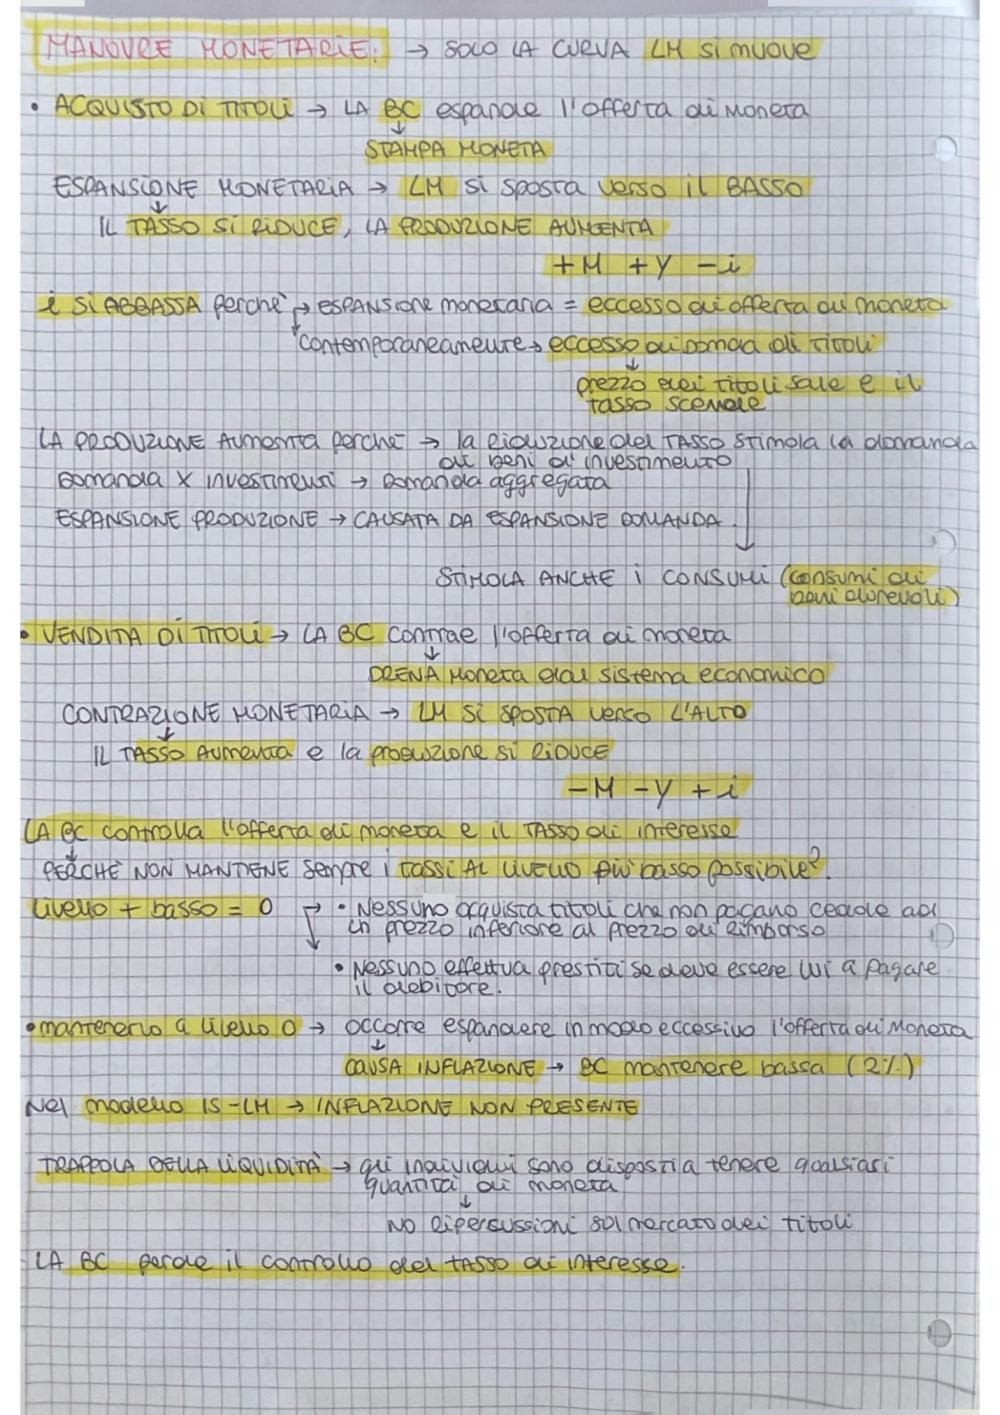 MANOVRE MONETARIE: → SOLO LA CURVA LM si muove
• ACQUISTO DI TITOLI → LA BC espande l'offerta di moneta
↓
STAMPA MONETA
ESPANSIONE MONETARIA → LM si sposta verso il BASSO
↓
IL TASSO SI RIDUCE, LA PRODUZIONE AUMENTA
+M +Y -i
i SI ABBASSA perchè → ESPANSIONE monetaria = eccesso di offerta di moneta
contemporaneamente → eccesso di domad di titoli
↓
prezzo dei titoli sale e il
tasso scende
LA PRODUZIONE AUMENTA perchè → la riduzione del TASSO stimola la domanda
di beni d'investimento
Domanda x investimenti → Domanda aggregata
ESPANSIONE PRODUZIONE → CAUSATA DA ESPANSIONE DOMANDA.
STIMOLA ANCHE i CONSUMI (consumi di
beni durevoli)
• VENDITA DI TITOLI → LA BC contrae l'offerta di moneta
↓
DRENA moneta dal sistema economico
CONTRAZIONE MONETARIA → LM SI SPOSTA verso L'ALTO
↓
IL TASSO AUMENTA e la produzione si RIDUCE
-M -Y +i
LA BC controlla l'offerta di moneta e il TASSO di interesse
↓
PERCHÈ NON MANTIENE sempre i tassi AL LIVELLO più basso possibile?
Livello + basso = 0 → • Nessuno acquista titoli che non pagano cedole ad
un prezzo inferiore al prezzo di rimborso
• Nessuno effettua prestiti se deve essere lui a pagare
il debitore.
• mantenerlo a livello 0 → occorre espandere in modo eccessivo l'offerta di moneta
↓
CAUSA INFLAZIONE → BC mantenere bassa (2%)
Nel modello IS-LM → INFLAZIONE NON PRESENTE
TRAPPOLA DELLA LIQUIDITÀ → gli individui sono disposti a tenere qualsiasi
quantità di moneta
↓
NO ripercussioni sul mercato dei titoli
LA BC perde il controllo del tasso di interesse.